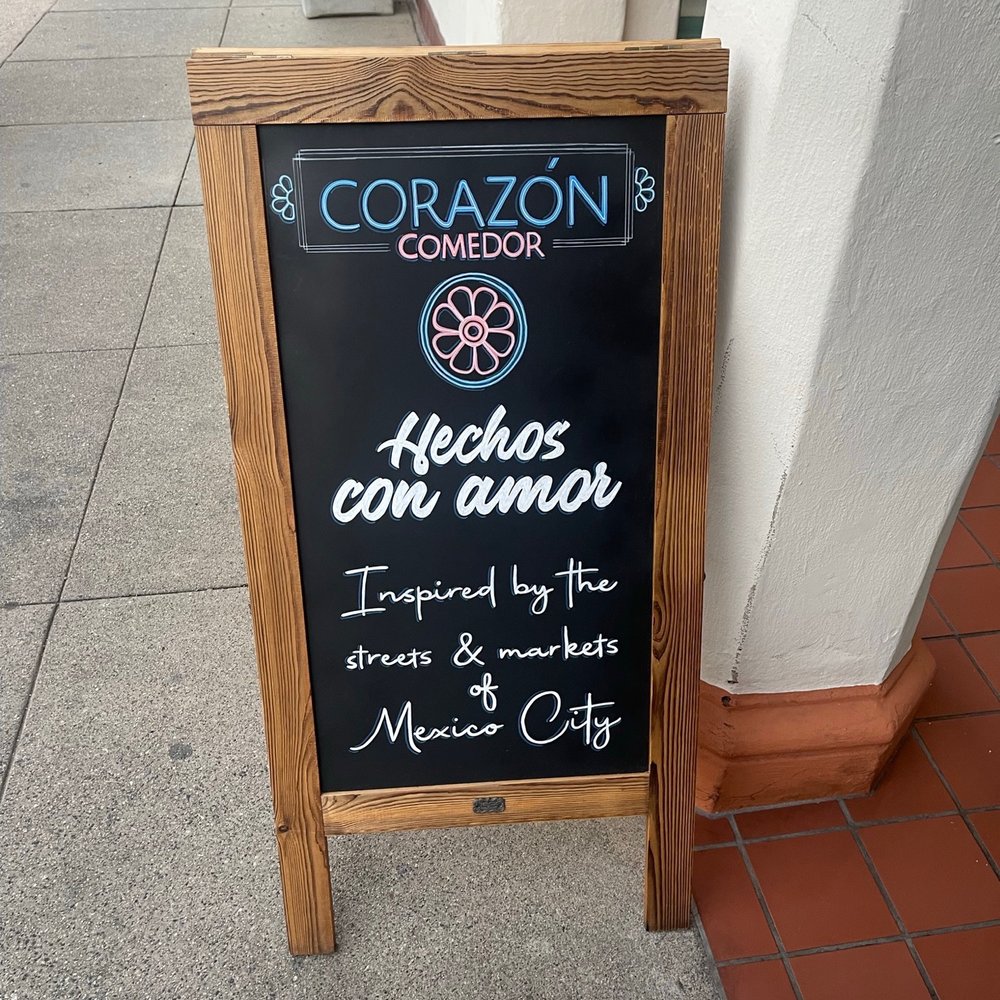 CORAZÓN
COMEDOR
Hechos
con amor
Inspired by the
streets & markets
of
Mexico City